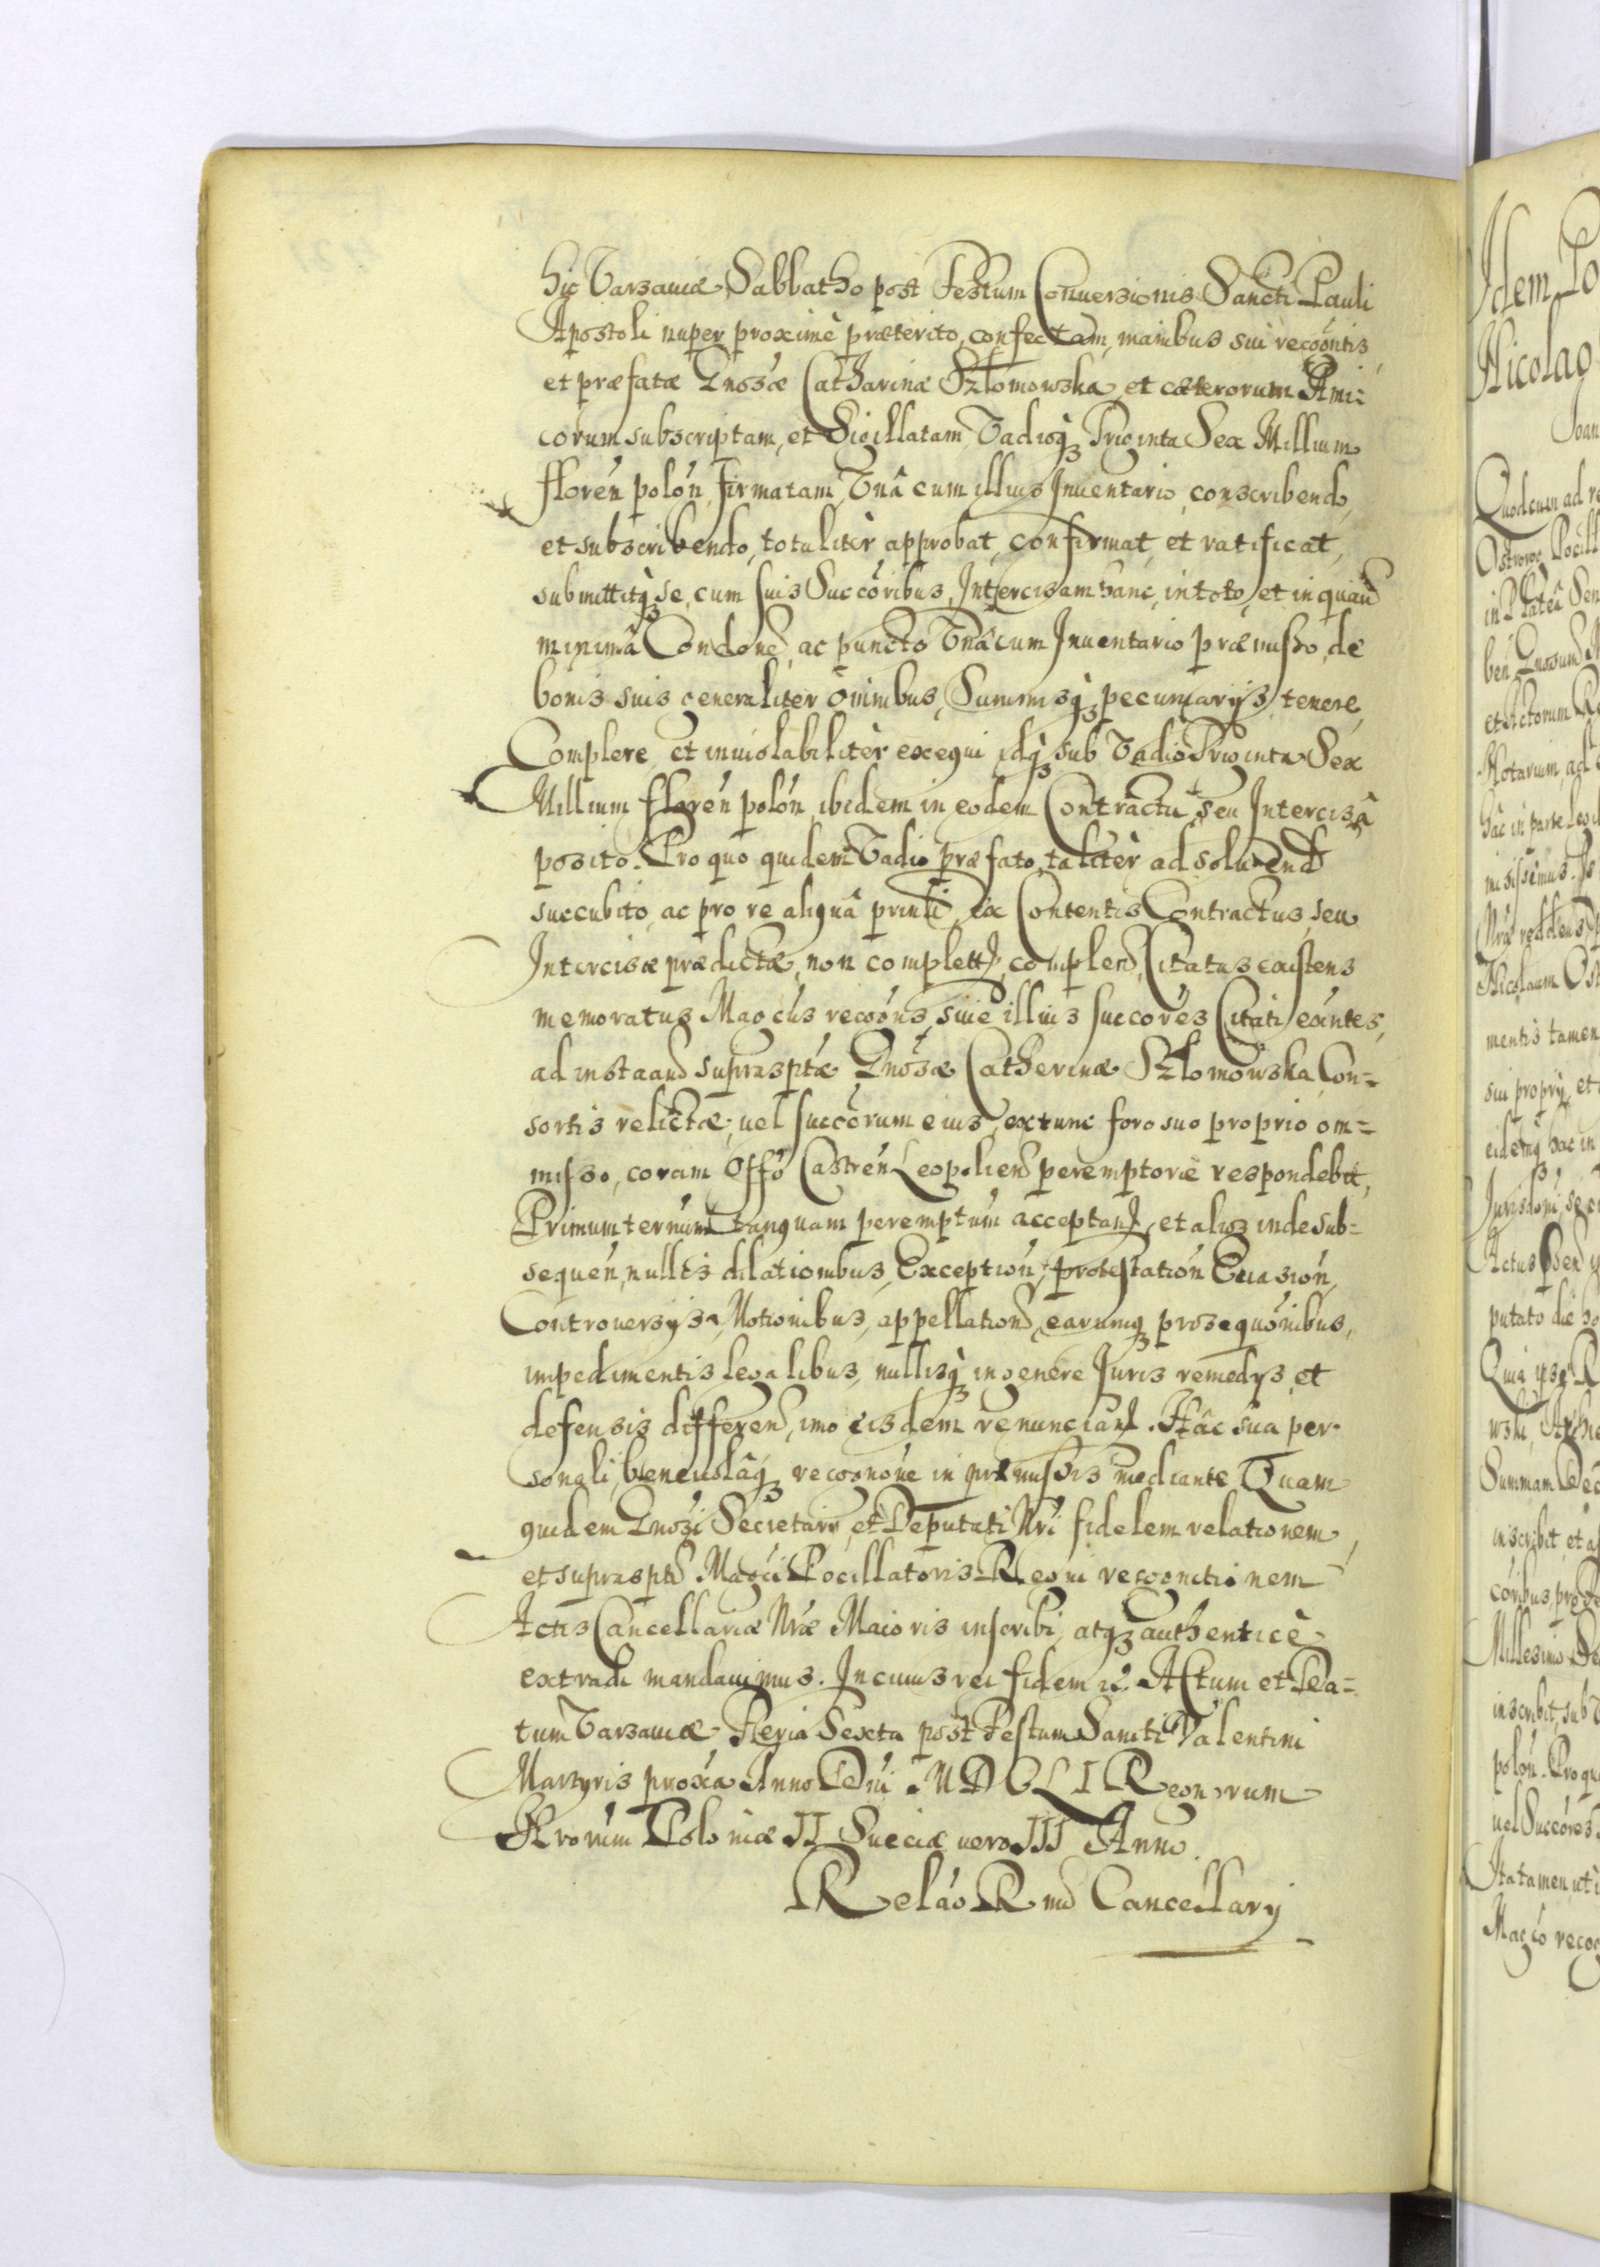 hic Varsaviæ Sabbatho post Festum Conversionis Sancti Pauli
Apostoli nuper proximè præterito, confectam, manibus sui recogntis
et præfatæ Gnosæ Catharinæ Szłomowska, et cæterorum Ami=
corum subscriptam, et Sigillatam, Vadioq3 Triginta Sex Millium
floren polon firmatam, Vnâ cum illius Inuentario, conscribendo,
et subscribendo, totaliter approbat, confirmat, et ratificat,
submittitq3 se, cum suis Succoribus, Intercisam hanc, in toto, et in quauis
minimâ Condone, ac puncto Vnâ cum Inuentario præmisso, de
bonis suis generaliter omnibus, Summisq3 pecuniarijs, tenere,
Complere, et inuiolabiliter exequi, idq3 sub Vadio Triginta Sex
Millium floren polon, ibidem in eodem Contractu, seu Intercisâ
posito. Pro quo quidem Vadio præfato, taliter ad soluend
succubito, ac pro re aliquâ ex Contentis Contractus, seu
Intercisæ prædictæ, non complett, complend, Citatus existens
memoratus Magcus recogns, siue illius succores Citati exntes,
ad instaan suprasptæ Gnosæ Catherinæ Szłomowska, Con=
sortis relictæ, uel succorum eius, extunc foro suo proprio om=
misso, coram Offo Castren Leopolien peremptoriè respondebit,
Primum ternum tanquam peremptum acceptan, et alios inde sub=
sequen, nullis dilationibus, Exception, protestation Euasion,
Controuersijs, Motionibus, appellation, earumq3 prosequonibus,
impedimentis legalibus, nullisq3 in genere Iuris remedys, et
defensis differen, imo eisdem renuncian. Hâc sua per=
sonali, beneuolâq3 recognone in præmissis mediante. Quam
quidem Gnosi Secretarij, et Deputati Nri fidelem relationem,
et supraspti Magci Pocillatoris Regni recognitionem
Actis Cancellariæ Nræ Maioris inscribi, atq3 authenticè
extradi mandauimus. In cuius rei fidem &c. Actum et Da=
tum Varsauiæ Feria Sexta post Festum Sancti Valentini
Martyris proxa Anno Dni MDCLI Regnorum
Nrorum Poloniæ II Sueciæ uero III Anno.
Relao Rmi Cancellarij